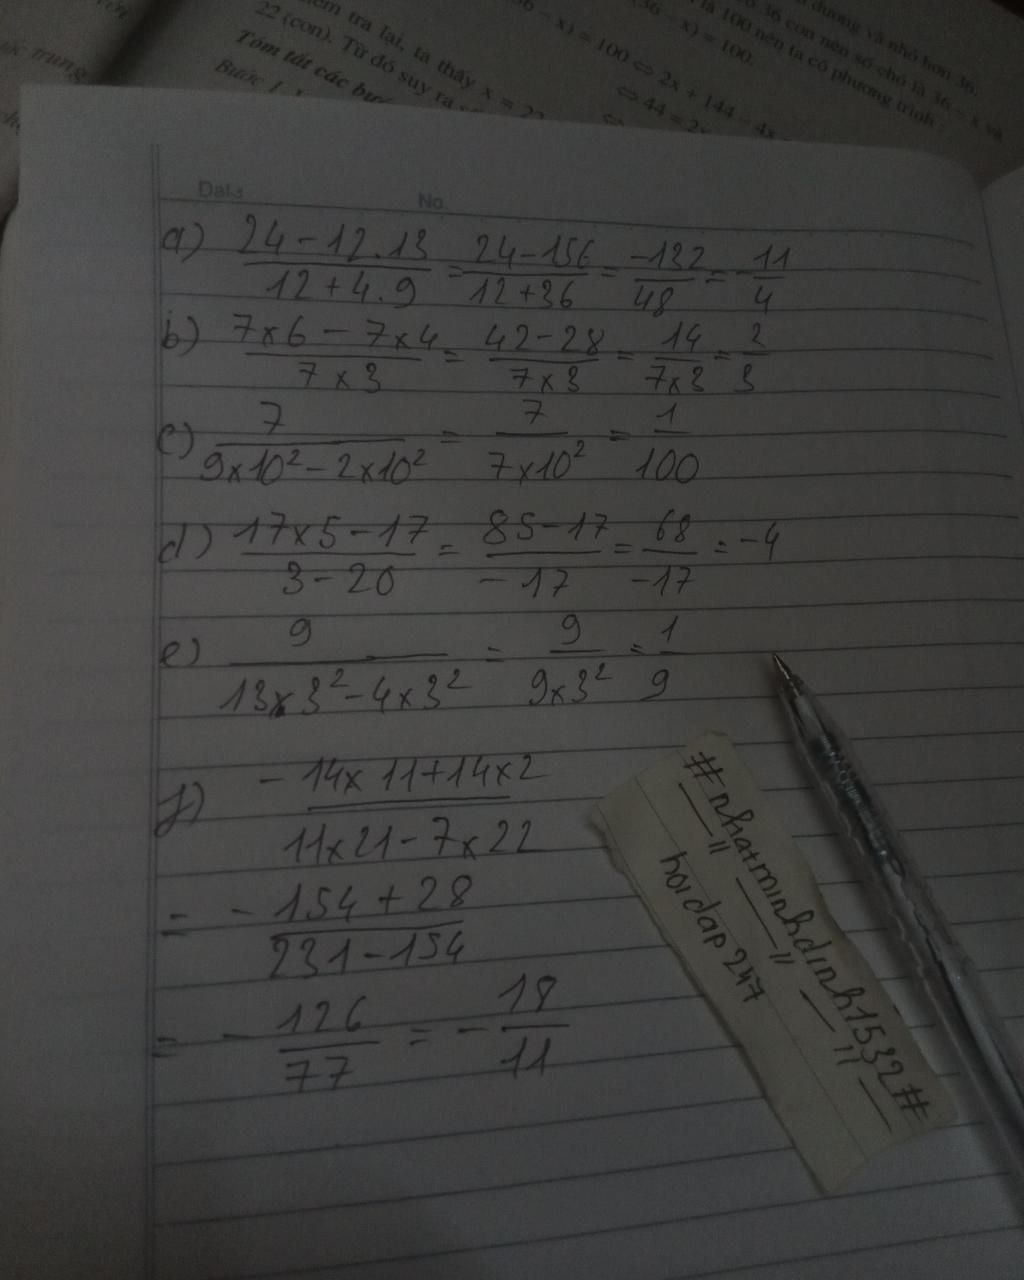 36 con nên số chó là 36 – x và
dương và nhỏ hơn 36.
là 100 nên ta có phương trình :
(36 – x) = 100.
x) = 100 ⇔ 2x + 144 – 4x
⇔ 44 = 2x
tra lại, ta thấy x = 22
22 (con). Từ đó suy ra
Tóm tắt các bước
Bước 1.
No.
a) \frac{24-12.13}{12+4.9} = \frac{24-156}{12+36} = \frac{-132}{48} = -\frac{11}{4}
b) \frac{7×6-7×4}{7×3} = \frac{42-28}{7×3} = \frac{14}{7×3} = \frac{2}{3}
c) \frac{7}{9×10²-2×10²} = \frac{7}{7×10²} = \frac{1}{100}
d) \frac{17×5-17}{3-20} = \frac{85-17}{-17} = \frac{68}{-17} = -4
e) \frac{9}{13×3²-4×3²} = \frac{9}{9×3²} = \frac{1}{9}
f) -\frac{14×11+14×2}{11×21-7×22}
= -\frac{154+28}{231-154}
= -\frac{126}{77} = -\frac{18}{11}
#nhatminhdinh1532#
hoidap247